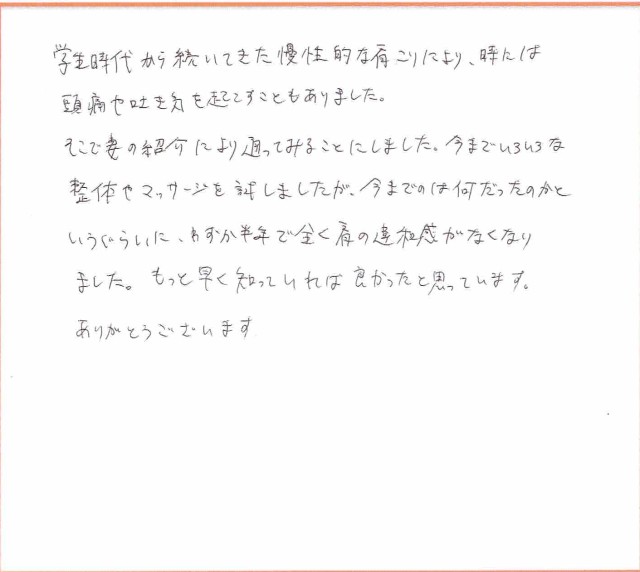 学生時代から続いてきた慢性的な肩こりにより、時には
頭痛や吐き気を起こすこともありました。
そこで妻の紹介により通ってみることにしました。今までいろいろな
整体やマッサージを試しましたが、今までのは何だったのかと
いうぐらいに、わずか半年で全く肩の違和感がなくなり
ました。もっと早く知っていれば良かったと思っています。
ありがとうございます